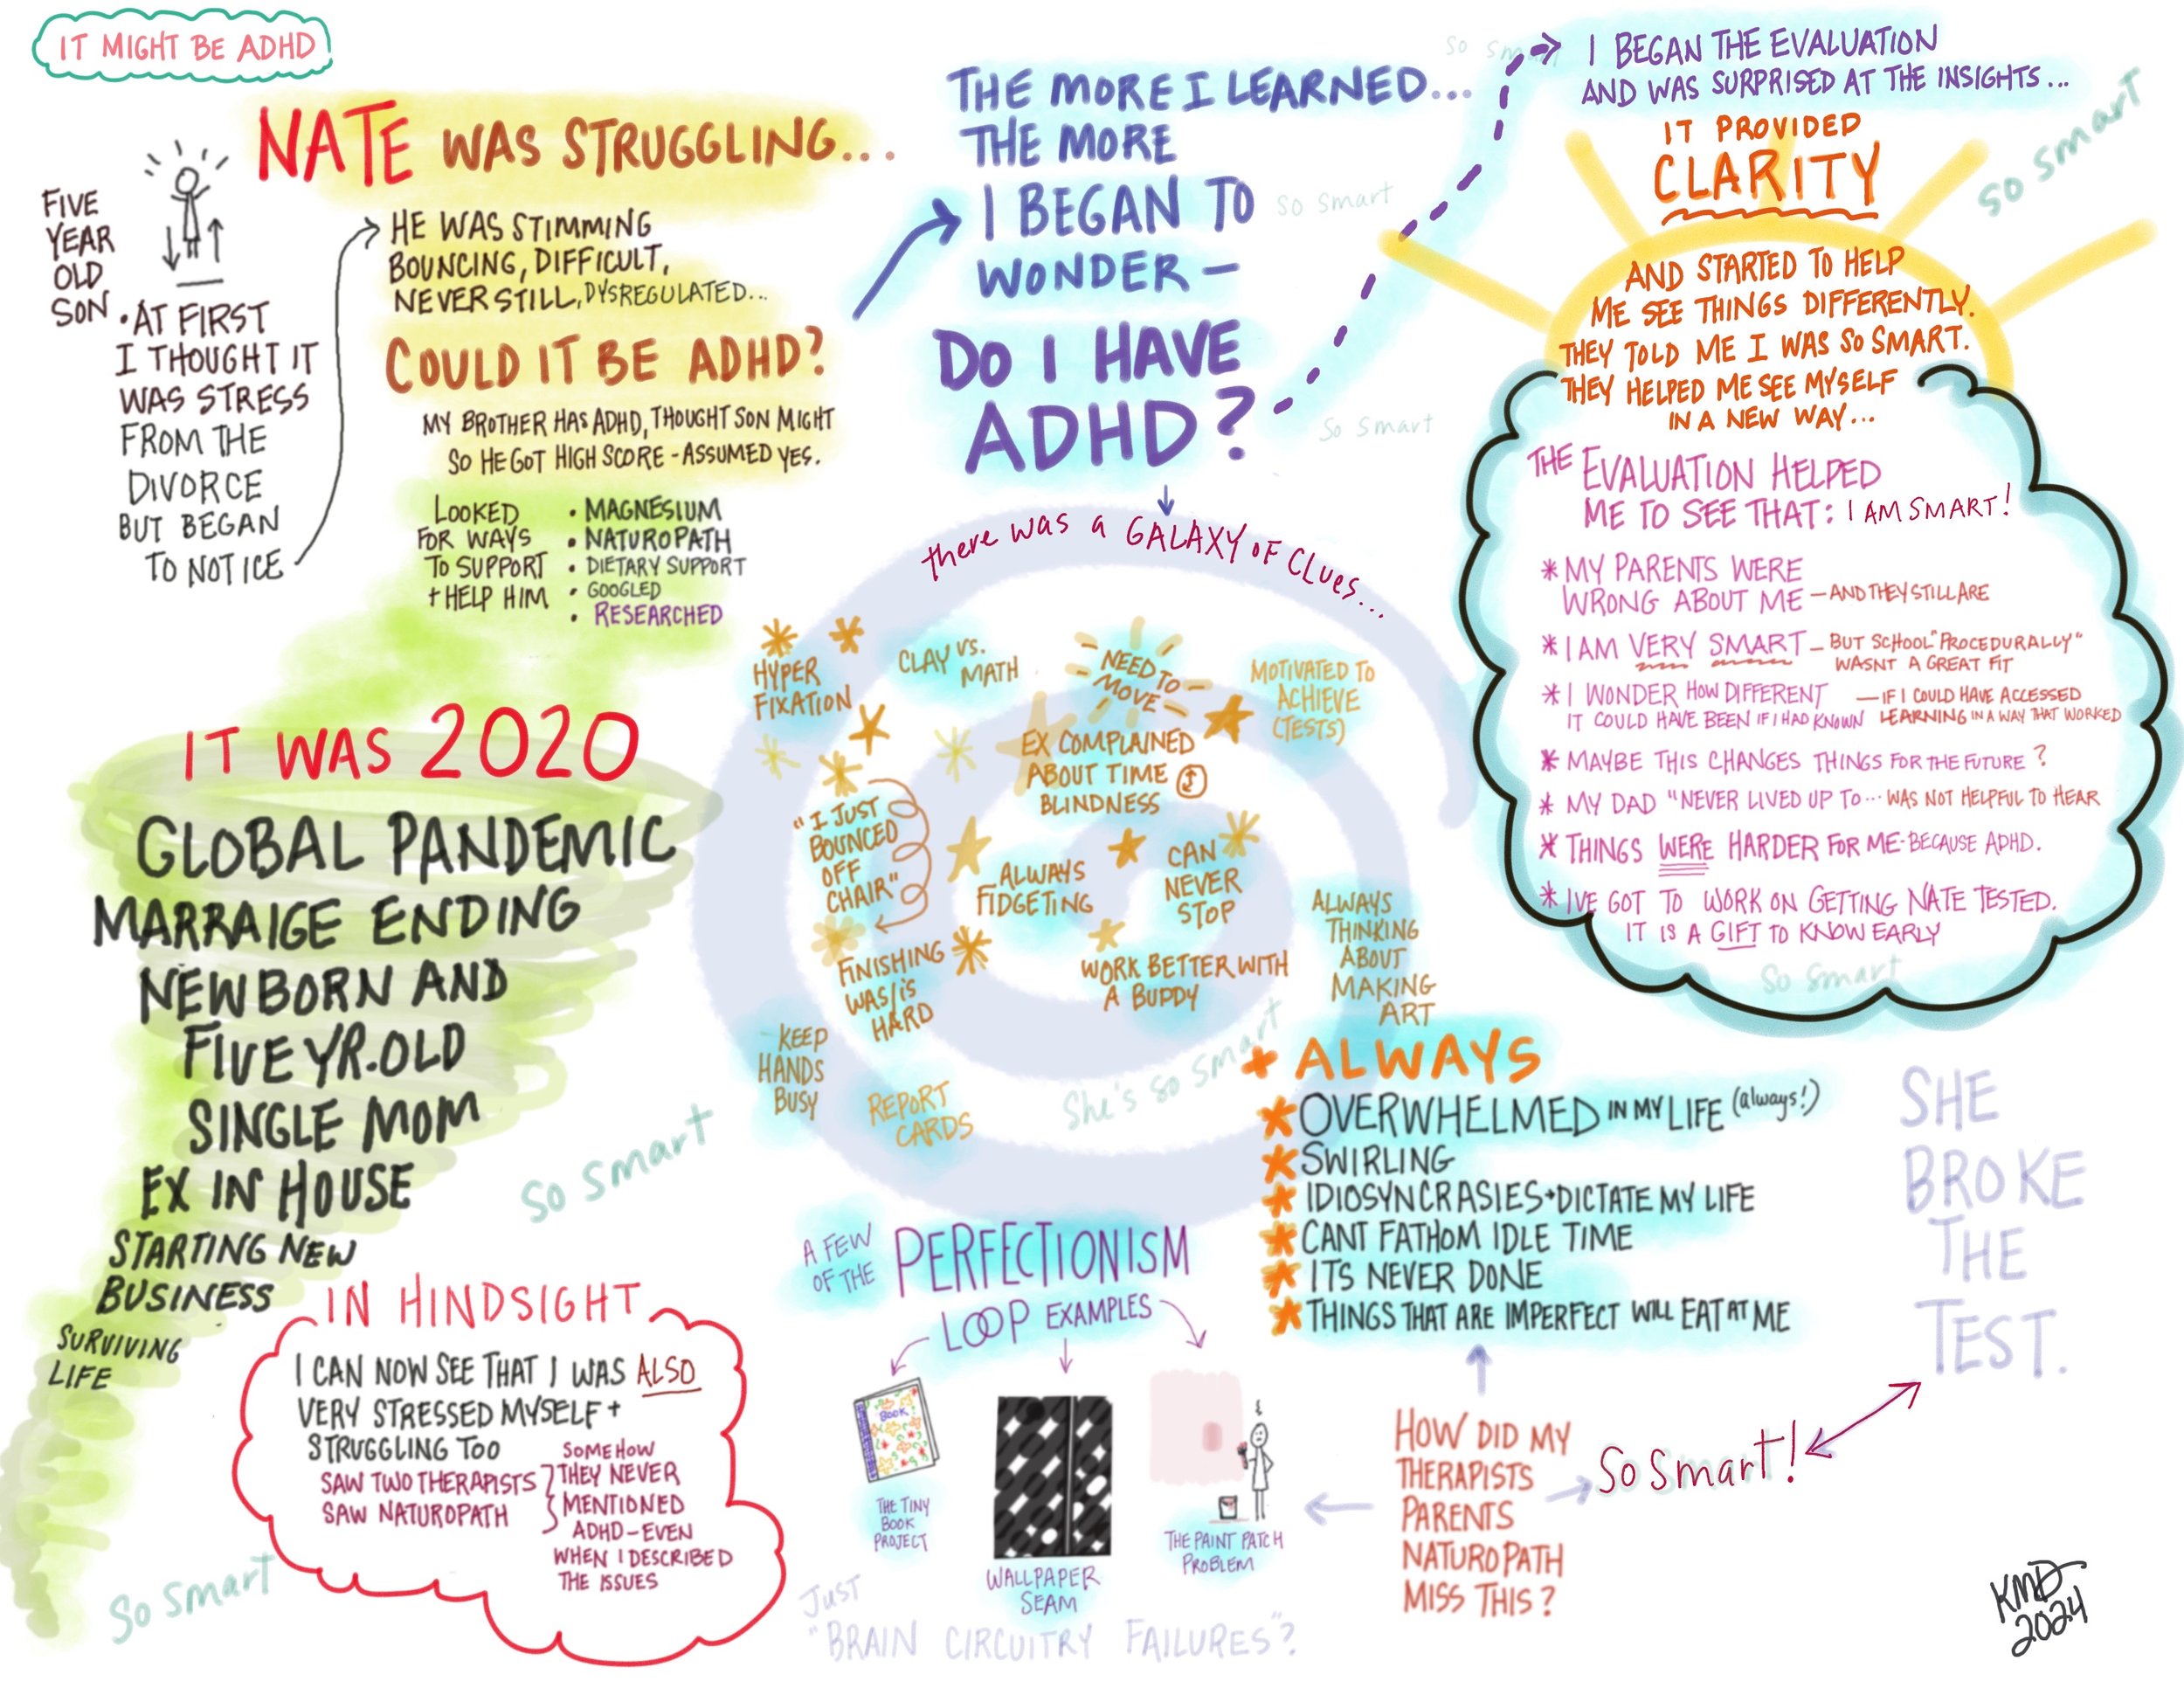 IT MIGHT BE ADHD
NATE WAS STRUGGLING...
FIVE
YEAR
OLD
SON
• AT FIRST
I THOUGHT IT
WAS STRESS
FROM THE
DIVORCE
BUT BEGAN
TO NOTICE
HE WAS STIMMING
BOUNCING, DIFFICULT,
NEVER STILL, DYSREGULATED...
COULD IT BE ADHD?
MY BROTHER HAS ADHD, THOUGHT SON MIGHT
SO HE GOT HIGH SCORE - ASSUMED YES.
LOOKED
FOR WAYS
TO SUPPORT
+ HELP HIM
• MAGNESIUM
• NATUROPATH
• DIETARY SUPPORT
• GOOGLED
• RESEARCHED
IT WAS 2020
GLOBAL PANDEMIC
MARRAIGE ENDING
NEWBORN AND
FIVE YR. OLD
SINGLE MOM
EX IN HOUSE
STARTING NEW
BUSINESS
SURVIVING
LIFE
So Smart
So Smart
IN HINDSIGHT
I CAN NOW SEE THAT I WAS ALSO
VERY STRESSED MYSELF +
STRUGGLING TOO
SAW TWO THERAPISTS
SAW NATUROPATH
SOMEHOW
THEY NEVER
MENTIONED
ADHD - EVEN
WHEN I DESCRIBED
THE ISSUES
THE MORE I LEARNED...
THE MORE
I BEGAN TO
WONDER -
DO I HAVE
ADHD?
So Smart
So Smart
So Smart
there was a GALAXY OF CLUES...
HYPER
FIXATION
CLAY VS.
MATH
NEED TO
MOVE
MOTIVATED TO
ACHIEVE
(TESTS)
EX COMPLAINED
ABOUT TIME
BLINDNESS
"I JUST
BOUNCED
OFF
CHAIR"
ALWAYS
FIDGETING
CAN
NEVER
STOP
ALWAYS
THINKING
ABOUT
MAKING
ART
FINISHING
WAS/IS
HARD
WORK BETTER WITH
A BUDDY
KEEP
HANDS
BUSY
REPORT
CARDS
She's so smart
+ ALWAYS
* OVERWHELMED IN MY LIFE (always!)
* SWIRLING
* IDIOSYNCRASIES → DICTATE MY LIFE
* CANT FATHOM IDLE TIME
* ITS NEVER DONE
* THINGS THAT ARE IMPERFECT WILL EAT AT ME
A FEW
OF THE
PERFECTIONISM
LOOP EXAMPLES
BOOK
THE TINY
BOOK
PROJECT
WALLPAPER
SEAM
THE PAINT PATCH
PROBLEM
JUST
"BRAIN CIRCUITRY FAILURES"?
HOW DID MY
THERAPISTS
PARENTS
NATUROPATH
MISS THIS?
So Smart!
SHE
BROKE
THE
TEST.
I BEGAN THE EVALUATION
AND WAS SURPRISED AT THE INSIGHTS...
IT PROVIDED
CLARITY
So Smart
AND STARTED TO HELP
ME SEE THINGS DIFFERENTLY.
THEY TOLD ME I WAS SO SMART.
THEY HELPED ME SEE MYSELF
IN A NEW WAY...
THE EVALUATION HELPED
ME TO SEE THAT: I AM SMART!
* MY PARENTS WERE
WRONG ABOUT ME - AND THEY STILL ARE
* I AM VERY SMART - BUT SCHOOL "PROCEDURALLY"
WASNT A GREAT FIT
* I WONDER HOW DIFFERENT
IT COULD HAVE BEEN IF I HAD KNOWN
- IF I COULD HAVE ACCESSED
LEARNING IN A WAY THAT WORKED
* MAYBE THIS CHANGES THINGS FOR THE FUTURE?
* MY DAD "NEVER LIVED UP TO... WAS NOT HELPFUL TO HEAR
* THINGS WERE HARDER FOR ME - BECAUSE ADHD.
* IVE GOT TO WORK ON GETTING NATE TESTED.
IT IS A GIFT TO KNOW EARLY
So Smart
KMD
2024